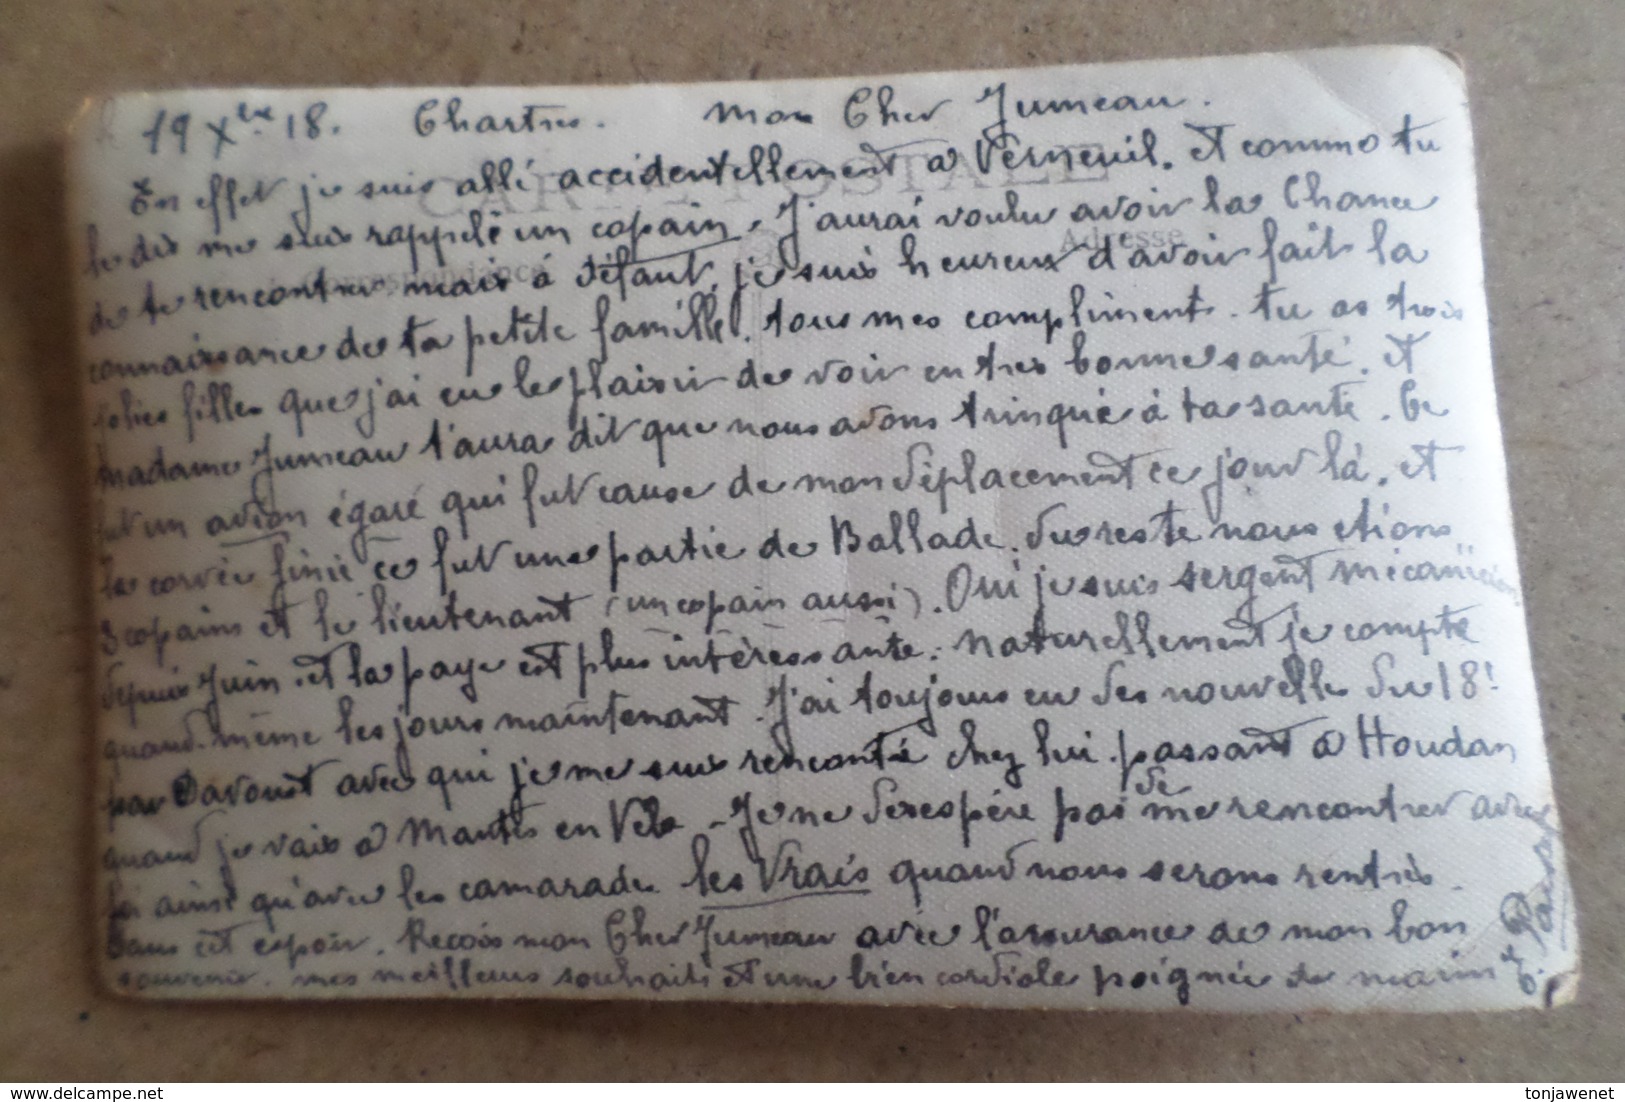 19 Xbre 18. Chartres. Mon Cher Jumeau.
En effet je suis allé accidentellement à Verneuil. et comme tu
le dis me suis rappelé un copain. J'aurai voulu avoir la Chance
de te rencontrer mais à défaut, je suis heureux d'avoir fait la
connaissance de ta petite famille. tous mes compliments. tu as trois
jolies filles que j'ai eu le plaisir de voir en très bonne santé. et
Madame Jumeau t'aura dit que nous avons trinqué à ta santé. Ce
fut un avion égaré qui fut cause de mon déplacement ce jour là. et
la corvée finie ce fut une partie de Ballade. du reste nous etions
3 copains et le lieutenant (un copain aussi). Oui je suis sergent mécanicien
depuis Juin. et la paye est plus intéressante. Naturellement je compte
quand-même les jours maintenant. J'ai toujours eu des nouvelles du 18!
par Davoust avec qui je me suis rencontré chez lui. passant à Houdan
quand je vais à Mantes en Vélo - Je ne desespére pas de me rencontrer avec
lui ainsi qu'avec les camarades les Vrais quand nous serons rentrés.
Dans cet espoir. Reçois mon Cher Jumeau avec l'assurance de mon bon
souvenir. mes meilleurs souhaits et une bien cordiale poignée de main
CARTE POSTALE
Correspondance
Adresse
tonjawenet
www.delcampe.net